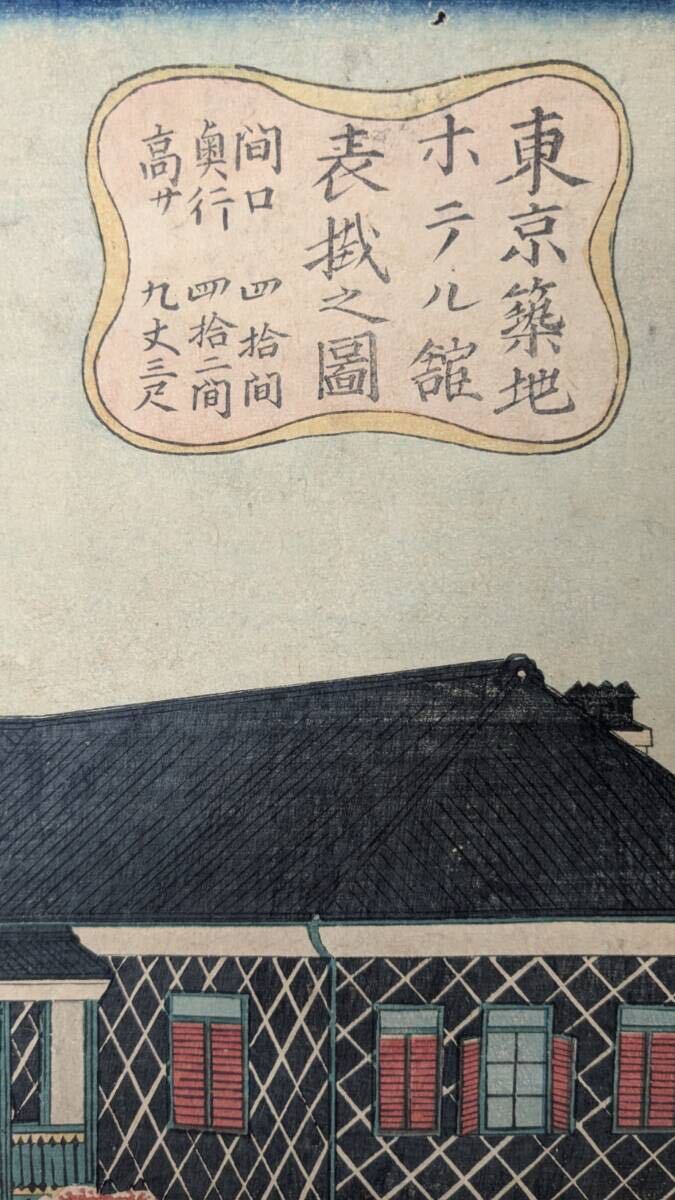 東京築地
ホテル舘
表掛之圖
间口 四拾间
奥行 四拾二間
高サ 九丈三尺